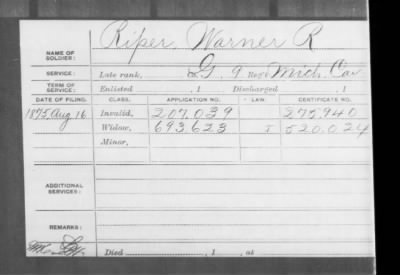 Riper, Warner R
NAME OF SOLDIER:
SERVICE: Late rank, G. 9 Reg't Mich. Cav
TERM OF SERVICE: Enlisted , 1 Discharged , 1
DATE OF FILING. CLASS. APPLICATION NO. LAW. CERTIFICATE NO.
1875, Aug. 16 Invalid, 207.039 275.940
Widow, 693.623 520.024
Minor,
ADDITIONAL SERVICES:
REMARKS:
Died , 1 , at